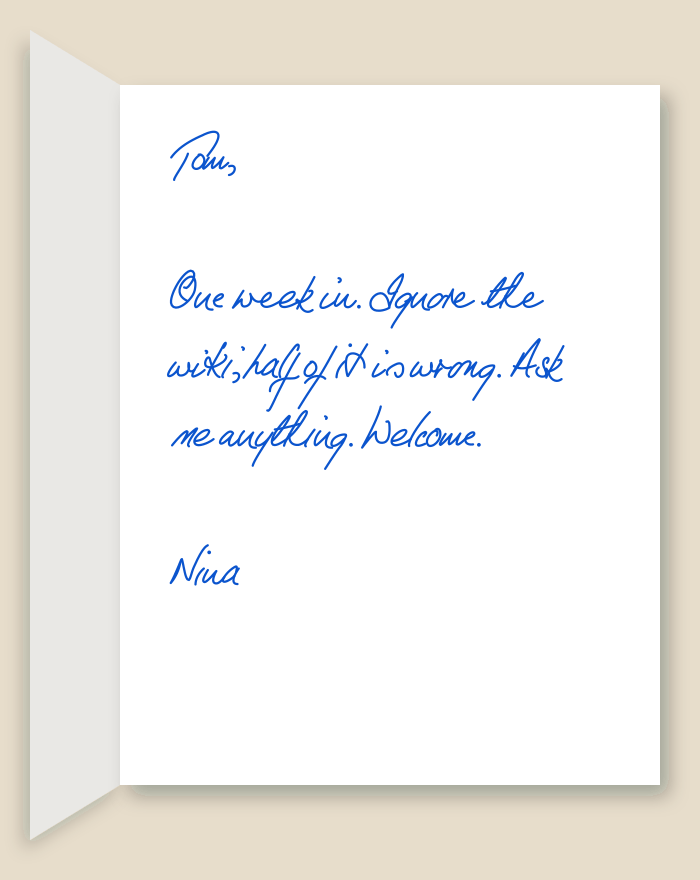 Tom,
One week in. Ignore the
wiki; half of it is wrong. Ask
me anything. Welcome.
Nina